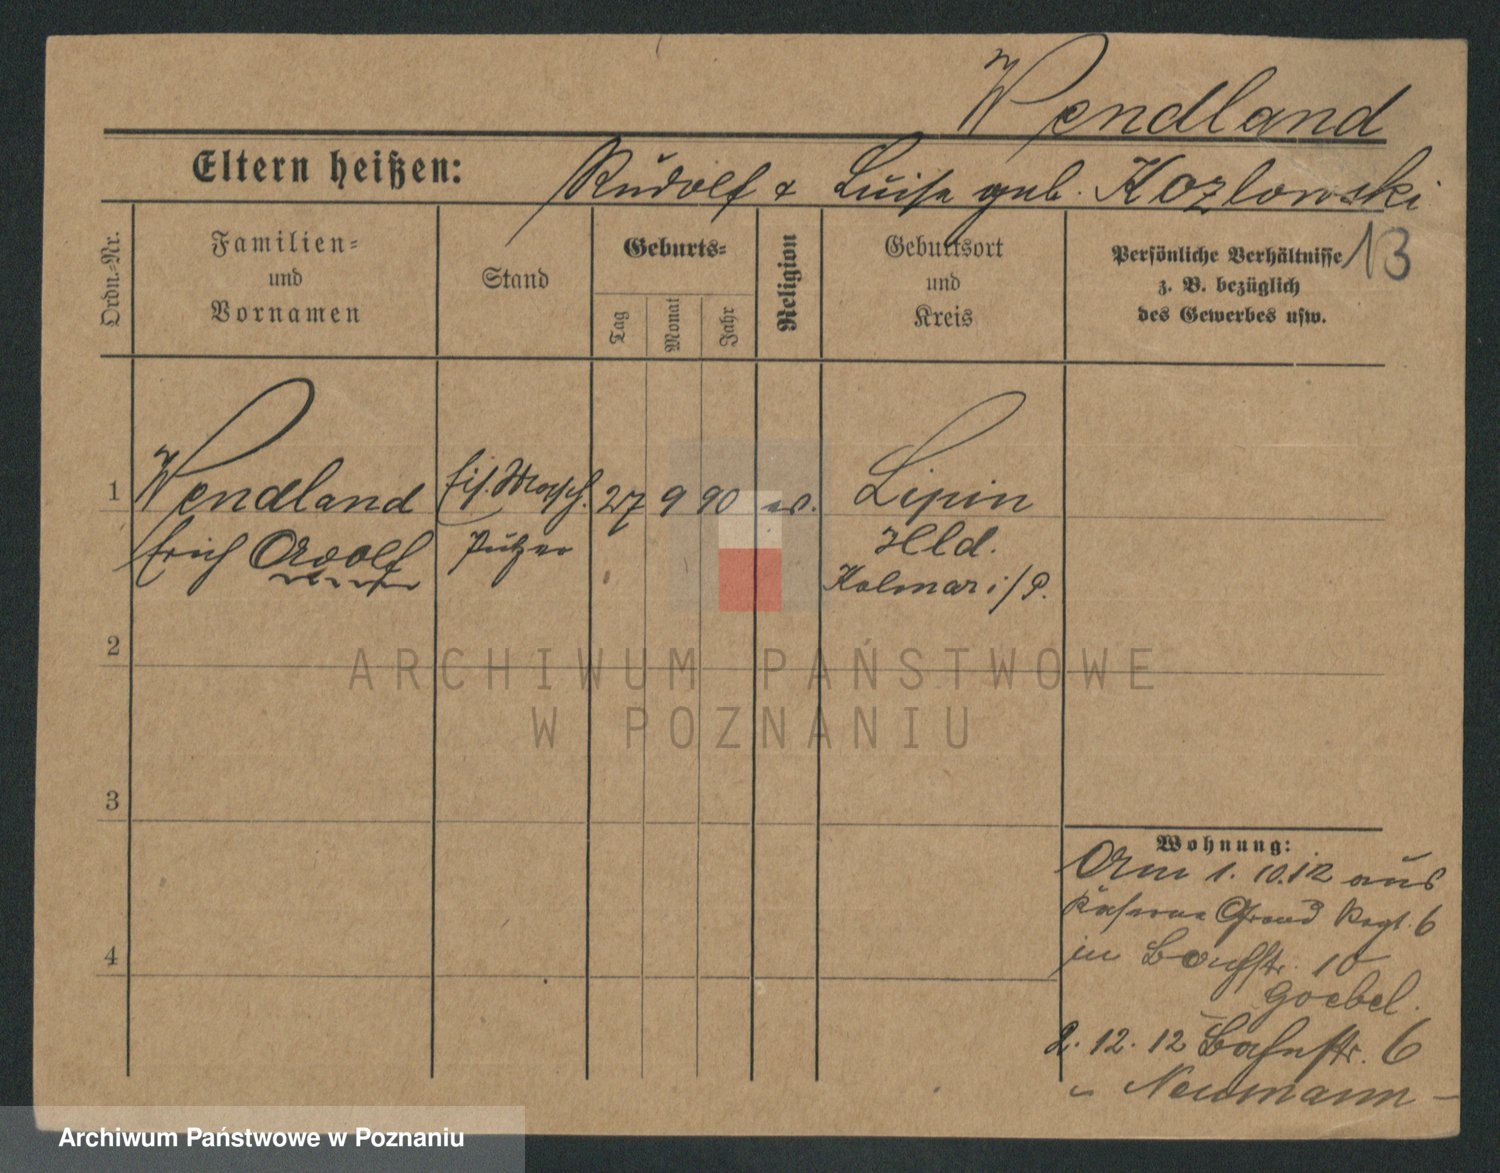 Wendland
Eltern heißen: Rudolf & Luise geb. Kozlowski
13
Ordn.-Nr.
Familien-
und
Vornamen
Stand
Geburts-
Tag
Monat
Jahr
Religion
Geburtsort
und
Kreis
Persönliche Verhältnisse
z. B. bezüglich
des Gewerbes usw.
1
Wendland
Erich Adolf
Eis. Masch.
Putzer
27 9 90 ev.
Lipin
Hld.
Kolmar i/P.
2
3
4
Wohnung:
Am 1. 10. 12 aus
Kaserne Gren Regt. 6
in Bachstr. 10
Goebel.
2. 12. 12 Bahnstr. 6
Neumann
ARCHIWUM PAŃSTWOWE
W POZNANIU
Archiwum Państwowe w Poznaniu